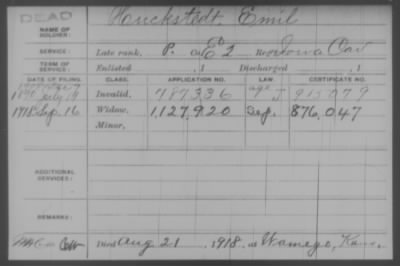 DEAD
NAME OF SOLDIER: Huckstedt, Emil
SERVICE: Late rank, P. Co. E 2 Reg Iowa Cav
TERM OF SERVICE: Enlisted , 1 Discharged , 1
DATE OF FILING. CLASS. APPLICATION NO. LAW. CERTIFICATE NO.
July 14 Invalid, 787336 J 915079
1918 Sep. 16 Widow, 1,127,920 876,047
Minor,
ADDITIONAL SERVICES:
REMARKS:
Died Aug 21 , 1918, at Wamego, Kans.